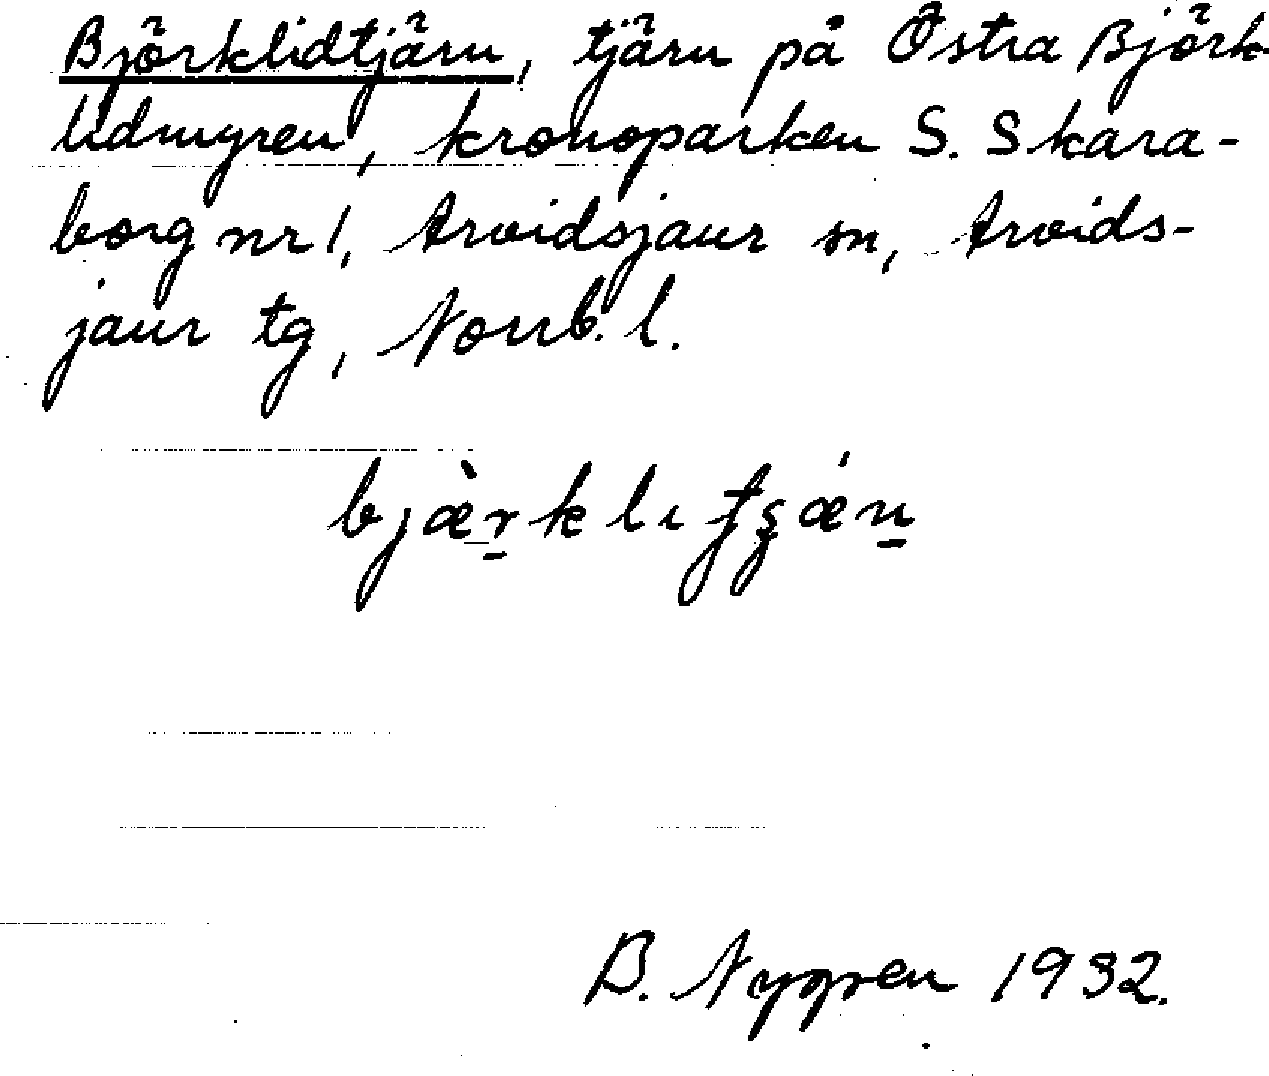 Björklidtjärn, tjärn på Östra Björk-
lidmyren, kronoparken S. Skara-
borg nr 1, Arvidsjaur sn, Arvids-
jaur tg, Norrb. l.
bjæ̀r̠klɩtʂǽn̠
B. Nygren 1932.